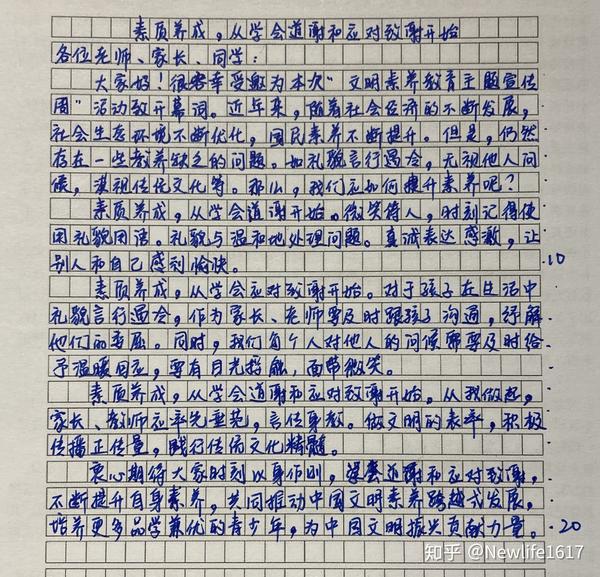 素质养成，从学会道谢和应对致谢开始
各位老师、家长、同学：
大家好！很荣幸受邀为本次“文明素养教育主题宣传
周”活动致开幕词。近年来，随着社会经济的不断发展，
社会生态环境不断优化，国民素养不断提升。但是，仍然
存在一些教养缺乏的问题。如礼貌言行遇冷，无视他人问
候，漠视传统文化等。那么，我们应如何提升素养呢？
素质养成，从学会道谢开始。微笑待人，时刻记得使
用礼貌用语。礼貌与温和地处理问题。真诚表达感激，让
别人和自己感到愉快。
10
素质养成，从学会应对致谢开始。对于孩子在生活中
礼貌言行遇冷，作为家长、老师要及时跟孩子沟通，纾解
他们的委屈。同时，我们每个人对他人的问候需要及时给
予温暖回应，要有目光接触，面带微笑。
素质养成，从学会道谢和应对致谢开始。从我做起，
家长、教师应率先垂范，言传身教。做文明的表率，积极
传播正传量，践行传统文化精髓。
衷心期待大家时刻以身作则，道谢和应对致谢，
不断提升自身素养，共同推动中国文明素养跨越式发展，
培养更多品学兼优的青少年，为中国文明振兴贡献力量。
20
知乎 @Newlife1617